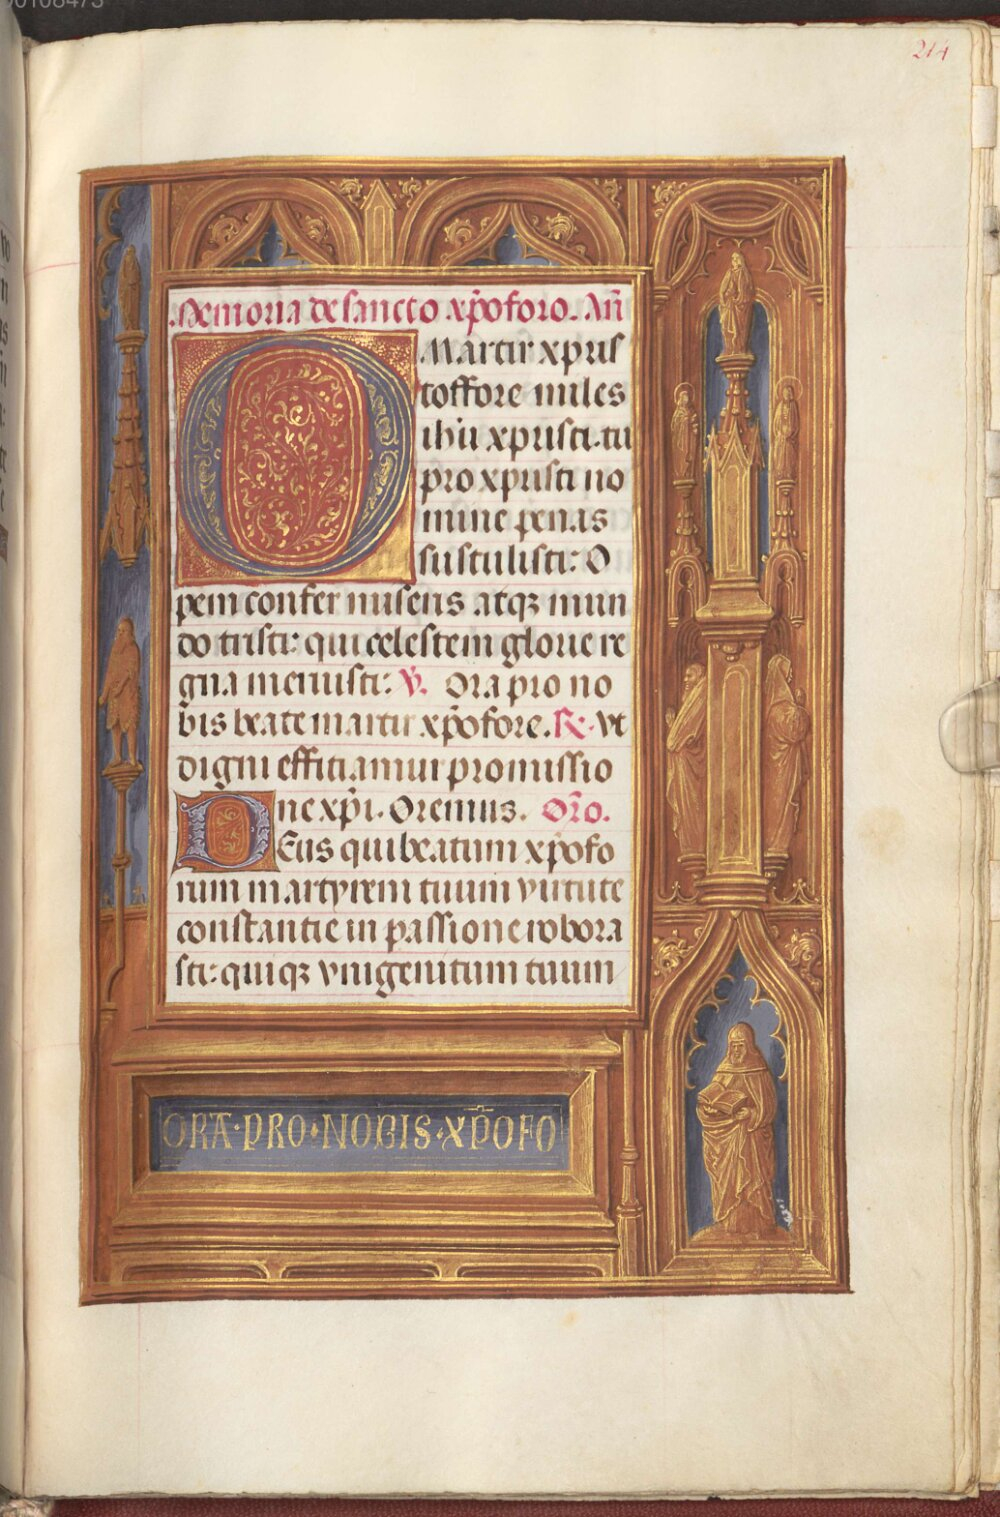 214
Memoria de sancto xp̄oforo. Añ
O Martir xpus
toffore miles
ihū xpusti. tu
pro xpusti no
mine penas
sustulisti: O
pem confer miseris atqȝ mun
do tristi: qui celestem glorie re
gna meruisti: ℣. Ora pro no
bis beate martir xp̄ofore. ℟. vt
digni efficiamur promissio
ne xp̄i. Oremus. Or̄o.
DEus qui beatum xp̄ofo
rum martyrem tuum virtute
constantie in passione robora
sti: quiqȝ vnigenitum tuum
ORA·PRO·NOBIS·XP̄OFO